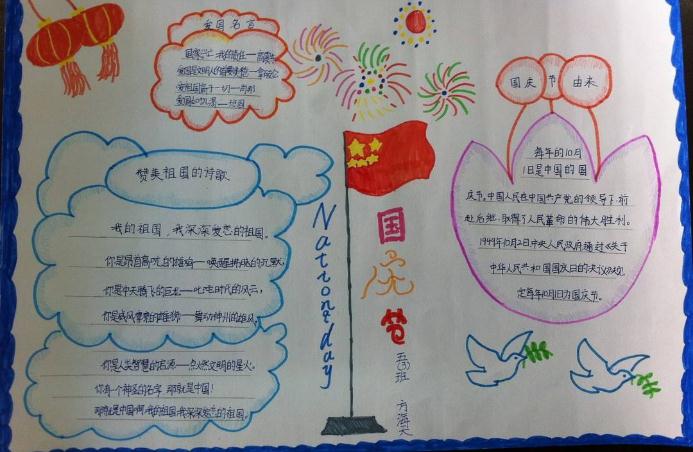 爱国名言
国庆节由来
赞美祖国的诗歌
我的祖国，我深深爱恋的祖国。
你是昂首高吭的雄鸡——唤醒拂晓的沉默，
你是冲天腾飞的巨龙——叱咤时代的风云，
你是威风凛凛的雄狮——舞动神州的雄风，
你是人类智慧的起源——点燃文明的星火。
你有一个神圣的名字，那就是中国！
那就是中国啊，我的祖国，我深深爱恋的祖国。
National day
国庆节
五(3)班 方海天
每年的10月
1日是中国的国
庆节。中国人民在中国共产党的领导下，前
赴后继，取得了人民革命的伟大胜利。
1949年10月2日中央人民政府通过《关于
中华人民共和国国庆日的决议》规
定每年10月1日为国庆节。